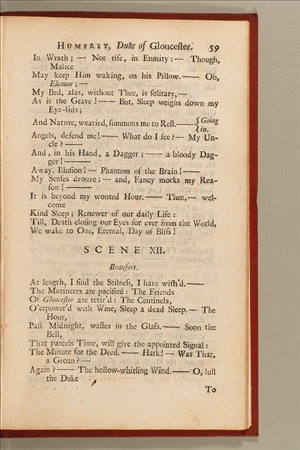 HUMFREY, Duke of Gloucester. 59
In Wrath; — Nor rise, in Enmity: — Though,
Malice
May keep Him waking, on his Pillow. — Oh,
Eleanor; —
My Bed, alas, without Thee, is solitary, —
As is the Grave! — But, Sleep weighs down my
Eye-lids;
And Nature, wearied, summons me to Rest. — {Going
in.
Angels, defend me! — What do I see? — My Un-
cle? —
And, in his Hand, a Dagger; — a bloody Dag-
ger! —
Away, Illusion! — Phantom of the Brain! —
My Senses drouze; — and, Fancy mocks my Rea-
son! —
It is beyond my wonted Hour. — Then, — wel-
come
Kind Sleep; Renewer of our daily Life:
Till, Death closing our Eyes for ever from the World,
We wake to One, Eternal, Day of Bliss!
SCENE XII.
Beaufort.
At length, I find the Stilness, I have wish'd. —
The Mutineers are pacified: The Friends
Of Gloucester are retir'd: The Centinels,
O'erpower'd with Wine, Sleep a dead Sleep. — The
Hour,
Past Midnight, wastes in the Glass. — Soon the
Bell,
That parcels Time, will give the appointed Signal:
The Minute for the Deed. — Hark! — Was That,
a Groan? —
Again? — The hollow-whistling Wind. — O, lull
the Duke
To